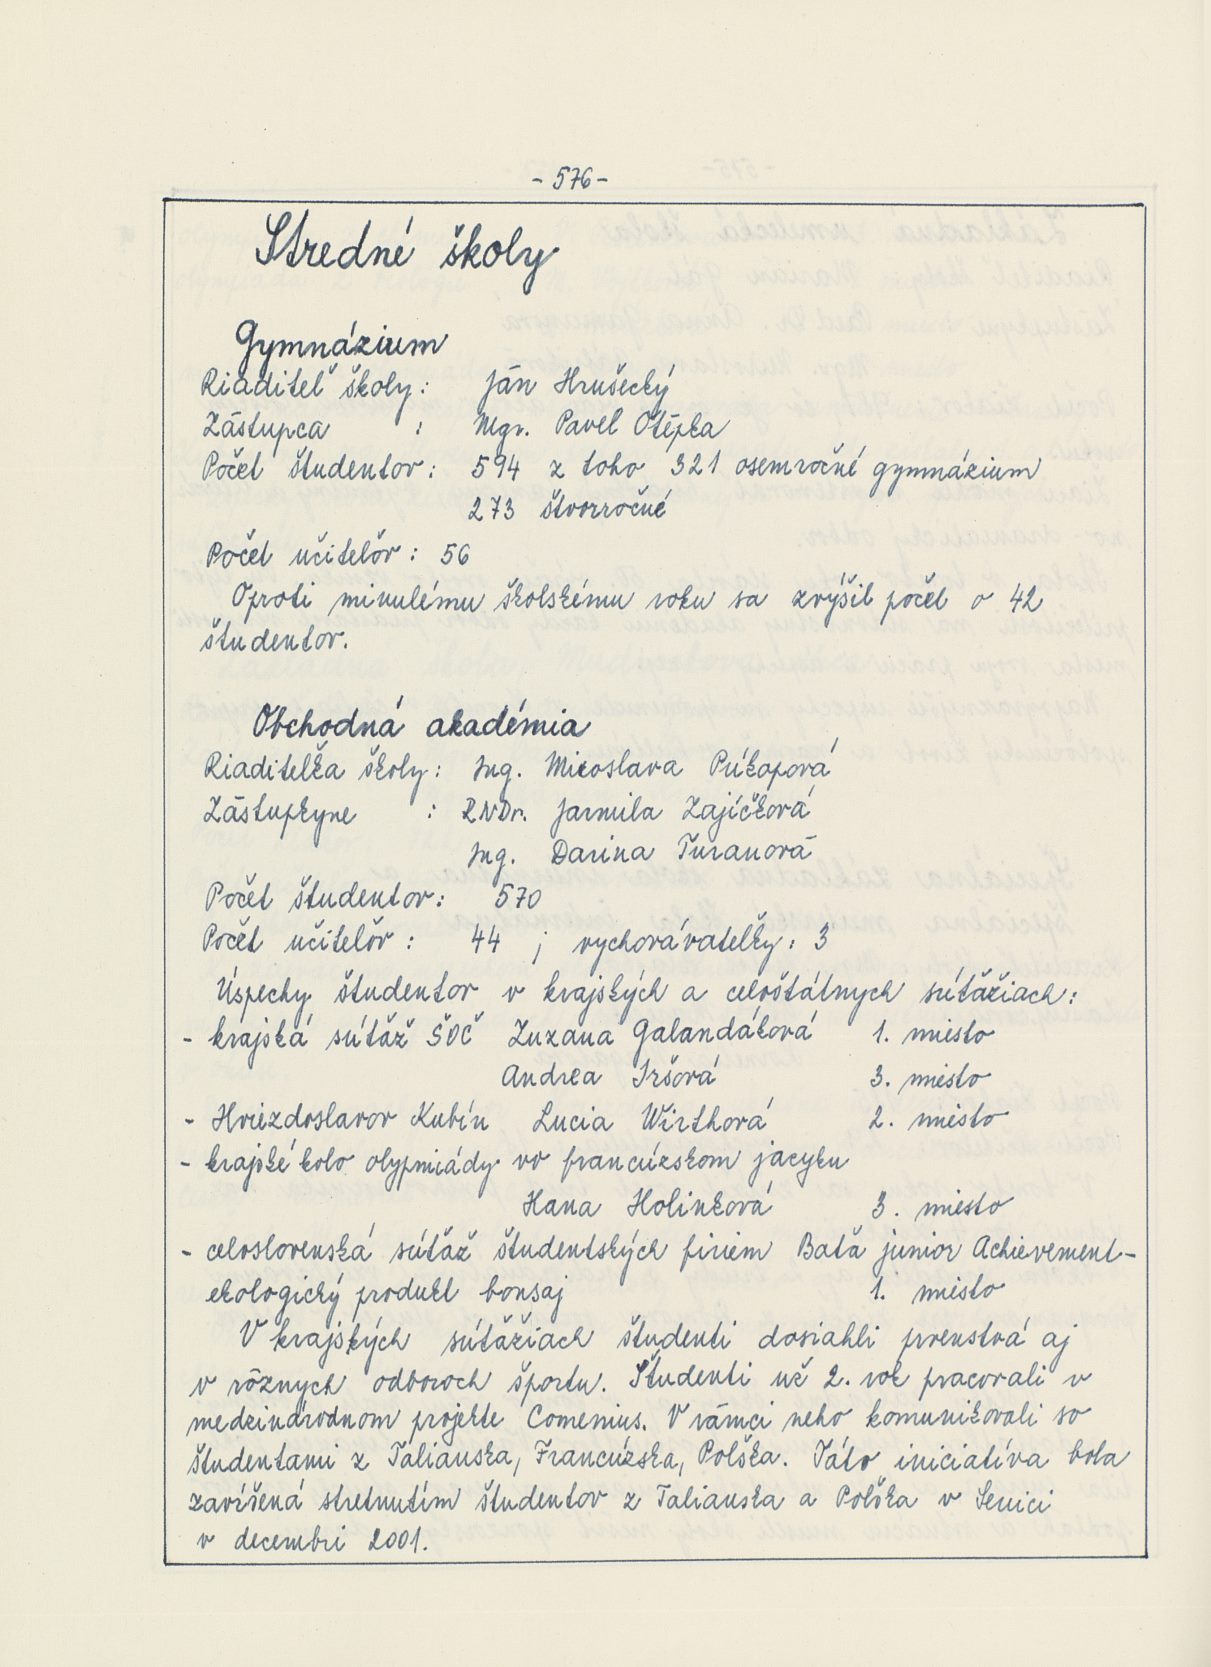 - 576 -
Stredné školy
Gymnázium
Riaditeľ školy: Ján Hrušecký
Zástupca : Mgr. Pavel Otépka
Počet študentov: 594 z toho 321 osemročné gymnázium
273 štvorročné
Počet učiteľov: 56
Oproti minulému školskému roku sa zvýšil počet o 42
študentov.
Obchodná akadémia
Riaditeľka školy: Ing. Miroslava Púkapová
Zástupkyne : RNDr. Jarmila Zajíčková
Ing. Darina Turanová
Počet študentov: 570
Počet učiteľov: 44 ; vychovávateľky: 3
Úspechy študentov v krajských a celoštátnych súťažiach:
- krajská súťaž SOČ Zuzana Galandáková 1. miesto
Andrea Iršová 3. miesto
- Hviezdoslavov Kubín Lucia Wirthová 2. miesto
- krajské kolo olypmiády vo francúzskom jazyku
Hana Holinková 3. miesto
- celoslovenská súťaž študentských firiem Baťa junior Achievement-
ekologický produkt bonsaj 1. miesto
V krajských súťažiach študenti dosiahli prvenstvá aj
v rôznych odboroch športu. Študenti už 2. rok pracovali v
medzinárodnom projekte Comenius. V rámci neho komunikovali so
študentami z Talianska, Francúzska, Poľska. Táto iniciatíva bola
zavŕšená stretnutím študentov z Talianska a Poľska v Senici
v decembri 2001.